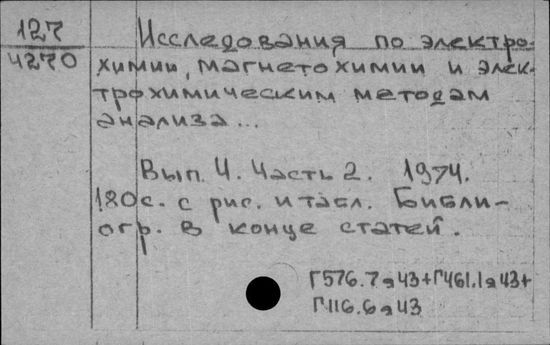 127
4270
Исследования по электро-
химии, магнетохимии и элек-
трохимическим методам
анализа...
Вып. 4. Часть 2. 1974.
180с. с рис. и табл. Библи-
огр. в конце статей.
Г576.7я43+Г461.1я43+
Г116.6я43